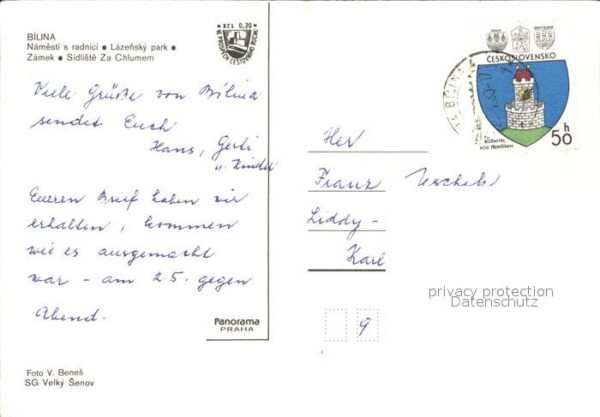 BÍLINA
Náměstí s radnicí • Lázeňský park •
Zámek • Sídliště Za Chlumem
Kčs 0,20
Viele Grüße von Bilina
sendet Euch
Hans, Gerti
u. Kinder
Eueren Brief haben wir
erhalten, kommen
wie es ausgemacht
war - am 2.5. gegen
Abend.
Panorama
PRAHA
Foto V. Beneš
SG Velký Šenov
ČESKOSLOVENSKO
ROŽMITÁL
POD TŘEMŠÍNEM
50 h
BÍLINA
Her
Franz
Liddy-
Karl
9
privacy protection
Datenschutz